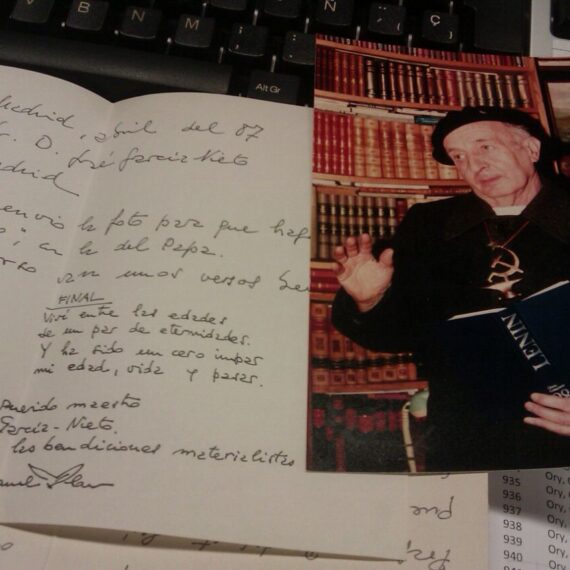 V B N M ; : Ç
Alt Gr
Madrid, abril del 87
D. José García Nieto
Madrid
envio la foto para que hag
", con la del Papa.
van unos versos
FINAL
Viví entre las edades
de un par de eternidades.
Y ha sido un cero impar
mi edad, vida y pasar.
querido maestro
García-Nieto.
las bendiciones materialistas
LENIN
935 Ory,
936 Ory,
937 Ory,
938 Ory,
939 Ory,
940 Ory,